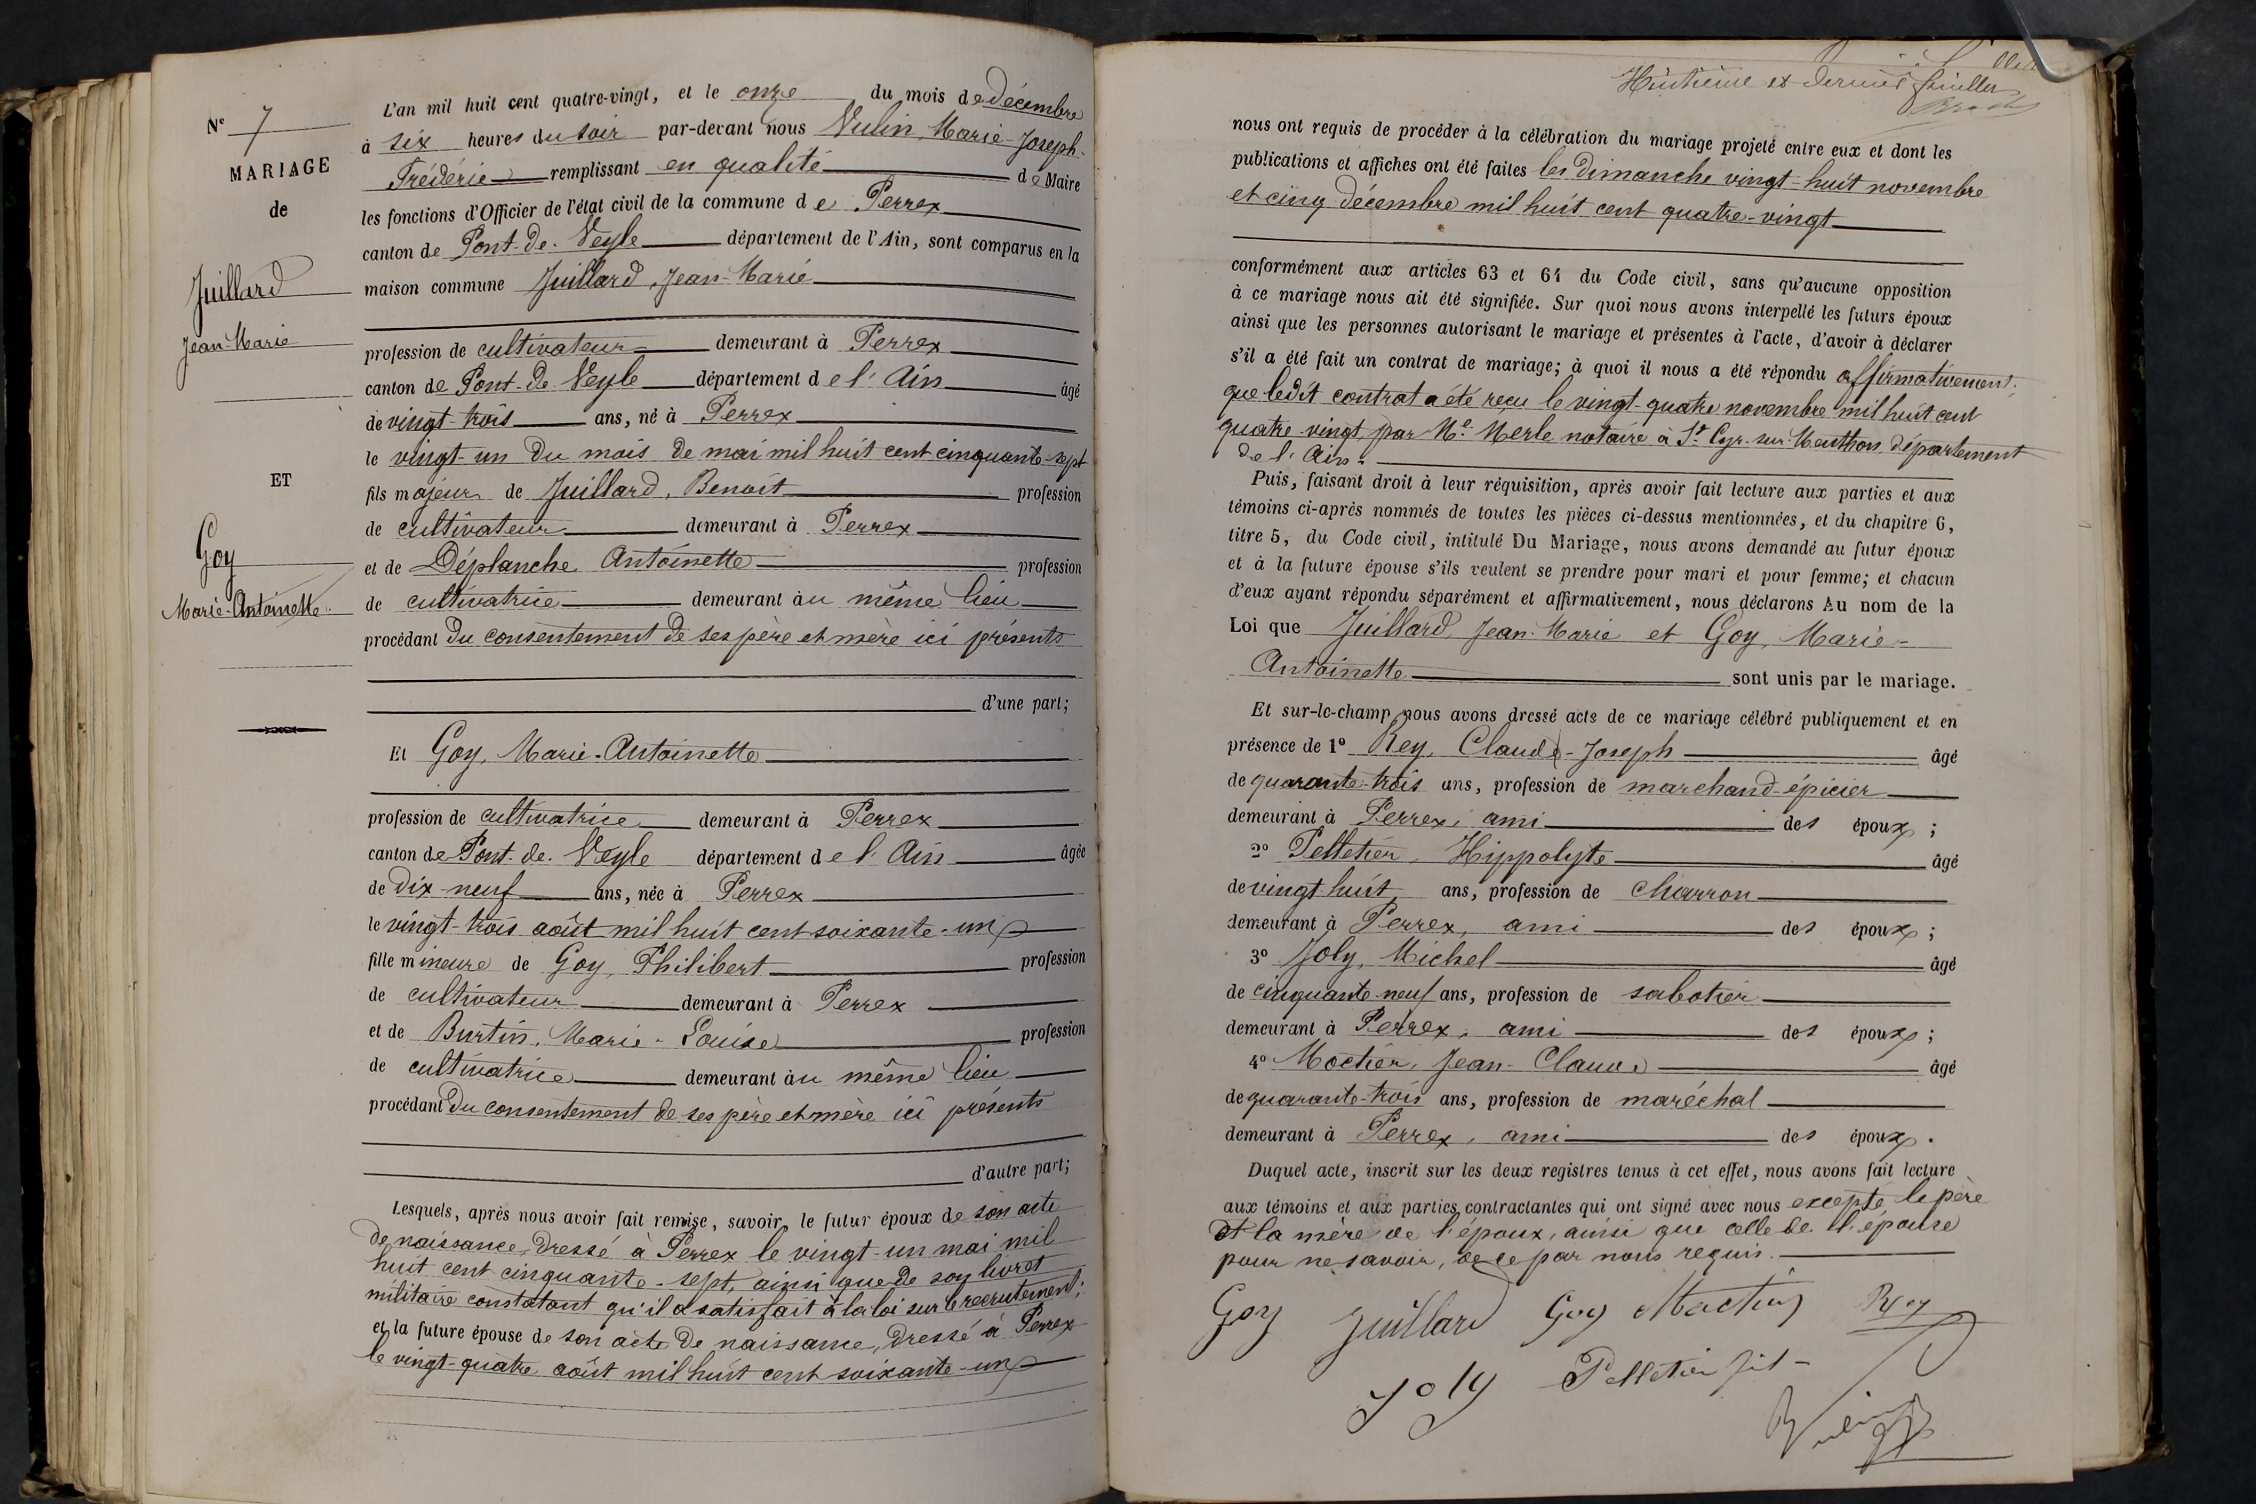 N° 7
MARIAGE
de
Juillard
Jean-Marie
ET
Goy
Marie-Antoinette
L'an mil huit cent quatre-vingt, et le onze du mois de décembre
à six heures du soir par-devant nous Vulin, Marie-Joseph-
Frédéric remplissant en qualité de Maire
les fonctions d'Officier de l'état civil de la commune de Perrex
canton de Pont-de-Veyle département de l'Ain, sont comparus en la
maison commune Juillard, Jean-Marie
profession de cultivateur demeurant à Perrex
canton de Pont-de-Veyle département de l'Ain âgé
de vingt-trois ans, né à Perrex
le vingt-un du mois de mai mil huit cent cinquante-sept
fils majeur de Juillard, Benoît profession
de cultivateur demeurant à Perrex
et de Déplanche Antoinette profession
de cultivatrice demeurant au même lieu
procédant du consentement de ses père et mère ici présents
d'une part;
Et Goy, Marie-Antoinette
profession de cultivatrice demeurant à Perrex
canton de Pont-de-Veyle département de l'Ain âgée
de dix-neuf ans, née à Perrex
le vingt-trois août mil huit cent soixante-un
fille mineure de Goy, Philibert profession
de cultivateur demeurant à Perrex
et de Burtin, Marie-Louise profession
de cultivatrice demeurant au même lieu
procédant du consentement de ses père et mère ici présents
d'autre part;
Lesquels, après nous avoir fait remise, savoir, le futur époux de son acte
de naissance, dressé à Perrex le vingt-un mai mil
huit cent cinquante-sept, ainsi que de son livret
militaire constatant qu'il a satisfait à la loi sur le recrutement;
et la future épouse de son acte de naissance, dressé à Perrex
le vingt-quatre août mil huit cent soixante-un
Huitième et dernier feuillet
nous ont requis de procéder à la célébration du mariage projeté entre eux et dont les
publications et affiches ont été faites les dimanche vingt-huit novembre
et cinq décembre mil huit cent quatre-vingt
conformément aux articles 63 et 64 du Code civil, sans qu'aucune opposition
à ce mariage nous ait été signifiée. Sur quoi nous avons interpellé les futurs époux
ainsi que les personnes autorisant le mariage et présentes à l'acte, d'avoir à déclarer
s'il a été fait un contrat de mariage; à quoi il nous a été répondu affirmativement;
que ledit contrat a été reçu le vingt-quatre novembre mil huit cent
quatre-vingt par Me Merle notaire à St Cyr-sur-Menthon, département
de l'Ain.
Puis, faisant droit à leur réquisition, après avoir fait lecture aux parties et aux
témoins ci-après nommés de toutes les pièces ci-dessus mentionnées, et du chapitre 6,
titre 5, du Code civil, intitulé Du Mariage, nous avons demandé au futur époux
et à la future épouse s'ils veulent se prendre pour mari et pour femme; et chacun
d'eux ayant répondu séparément et affirmativement, nous déclarons Au nom de la
Loi que Juillard, Jean-Marie et Goy, Marie-
Antoinette sont unis par le mariage.
Et sur-le-champ nous avons dressé acte de ce mariage célébré publiquement et en
présence de 1° Rey, Claude-Joseph âgé
de quarante-trois ans, profession de marchand-épicier
demeurant à Perrex, ami des époux;
2° Pelletier, Hippolyte âgé
de vingt-huit ans, profession de charron
demeurant à Perrex, ami des époux;
3° Joly, Michel âgé
de cinquante-neuf ans, profession de sabotier
demeurant à Perrex, ami des époux;
4° Moctier, Jean-Claude âgé
de quarante-trois ans, profession de maréchal
demeurant à Perrex, ami des époux.
Duquel acte, inscrit sur les deux registres tenus à cet effet, nous avons fait lecture
aux témoins et aux parties contractantes qui ont signé avec nous excepté le père
et la mère de l'époux, ainsi que celle de l'épouse
pour ne savoir, de ce par nous requis.
Goy Juillard Goy Moctier Rey
Joly Pelletier fils
Vulin